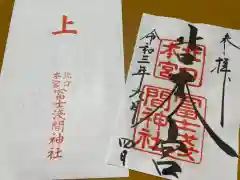 上
北口
本宮
冨士浅間神社
奉拝
上吉田
北口本宮
冨士浅
間神社
令和三年九月
四日